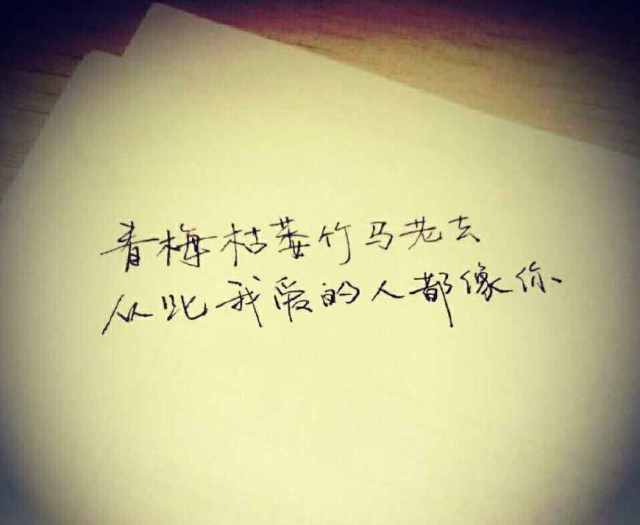 青梅枯萎竹马老去
从此我爱的人都像你